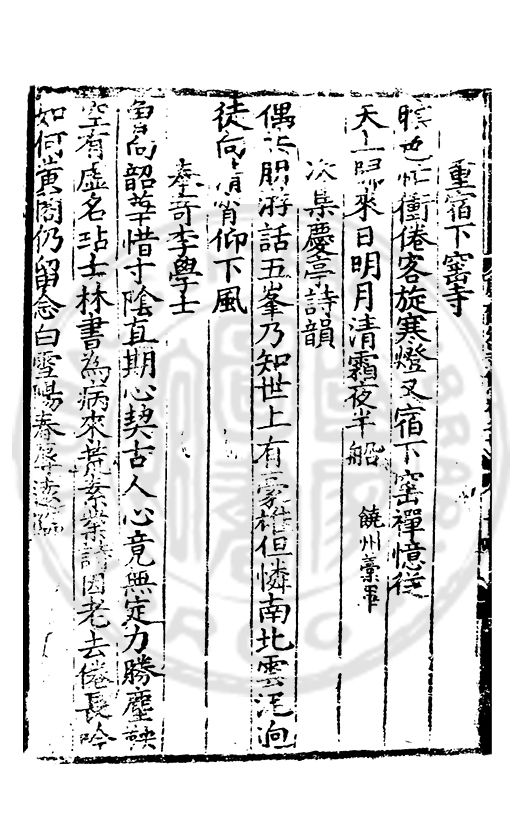 重宿下窰寺
衝倦客旋寒燈又宿下窰禪憶從
天上歸來日明月清霜夜半船 饒州藁畢
次集慶亭詩韻
偶 朋游話五峯乃知世上有豪雄但憐南北雲泥迥
徒向 仰下風
奉寄李學士
韶華惜寸陰直期心契古人心竟無定力勝塵鞅
空有虛名玷士林書為病來荒素業詩因老去倦長吟
如何黃閣仍留念白雪陽春